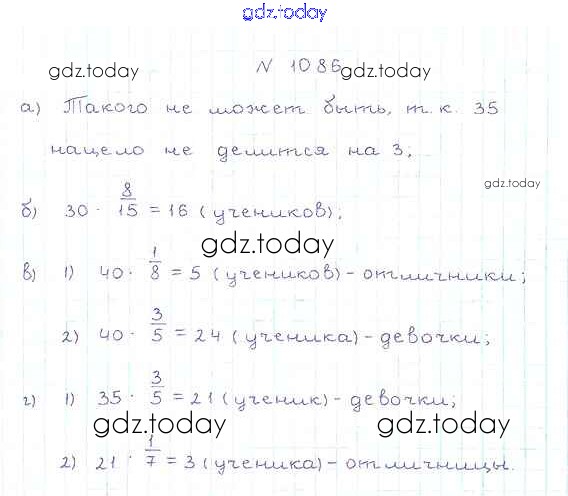 gdz.today
№ 1086
gdz.today gdz.today
а) Такого не может быть, т.к. 35
нацело не делится на 3;
gdz.today
б) 30 · 8/15 = 16 (учеников);
gdz.today
в) 1) 40 · 1/8 = 5 (учеников) - отличники;
2) 40 · 3/5 = 24 (ученика) - девочки;
г) 1) 35 · 3/5 = 21 (ученик) - девочки;
gdz.today gdz.today
2) 21 · 1/7 = 3 (ученика) - отличницы.